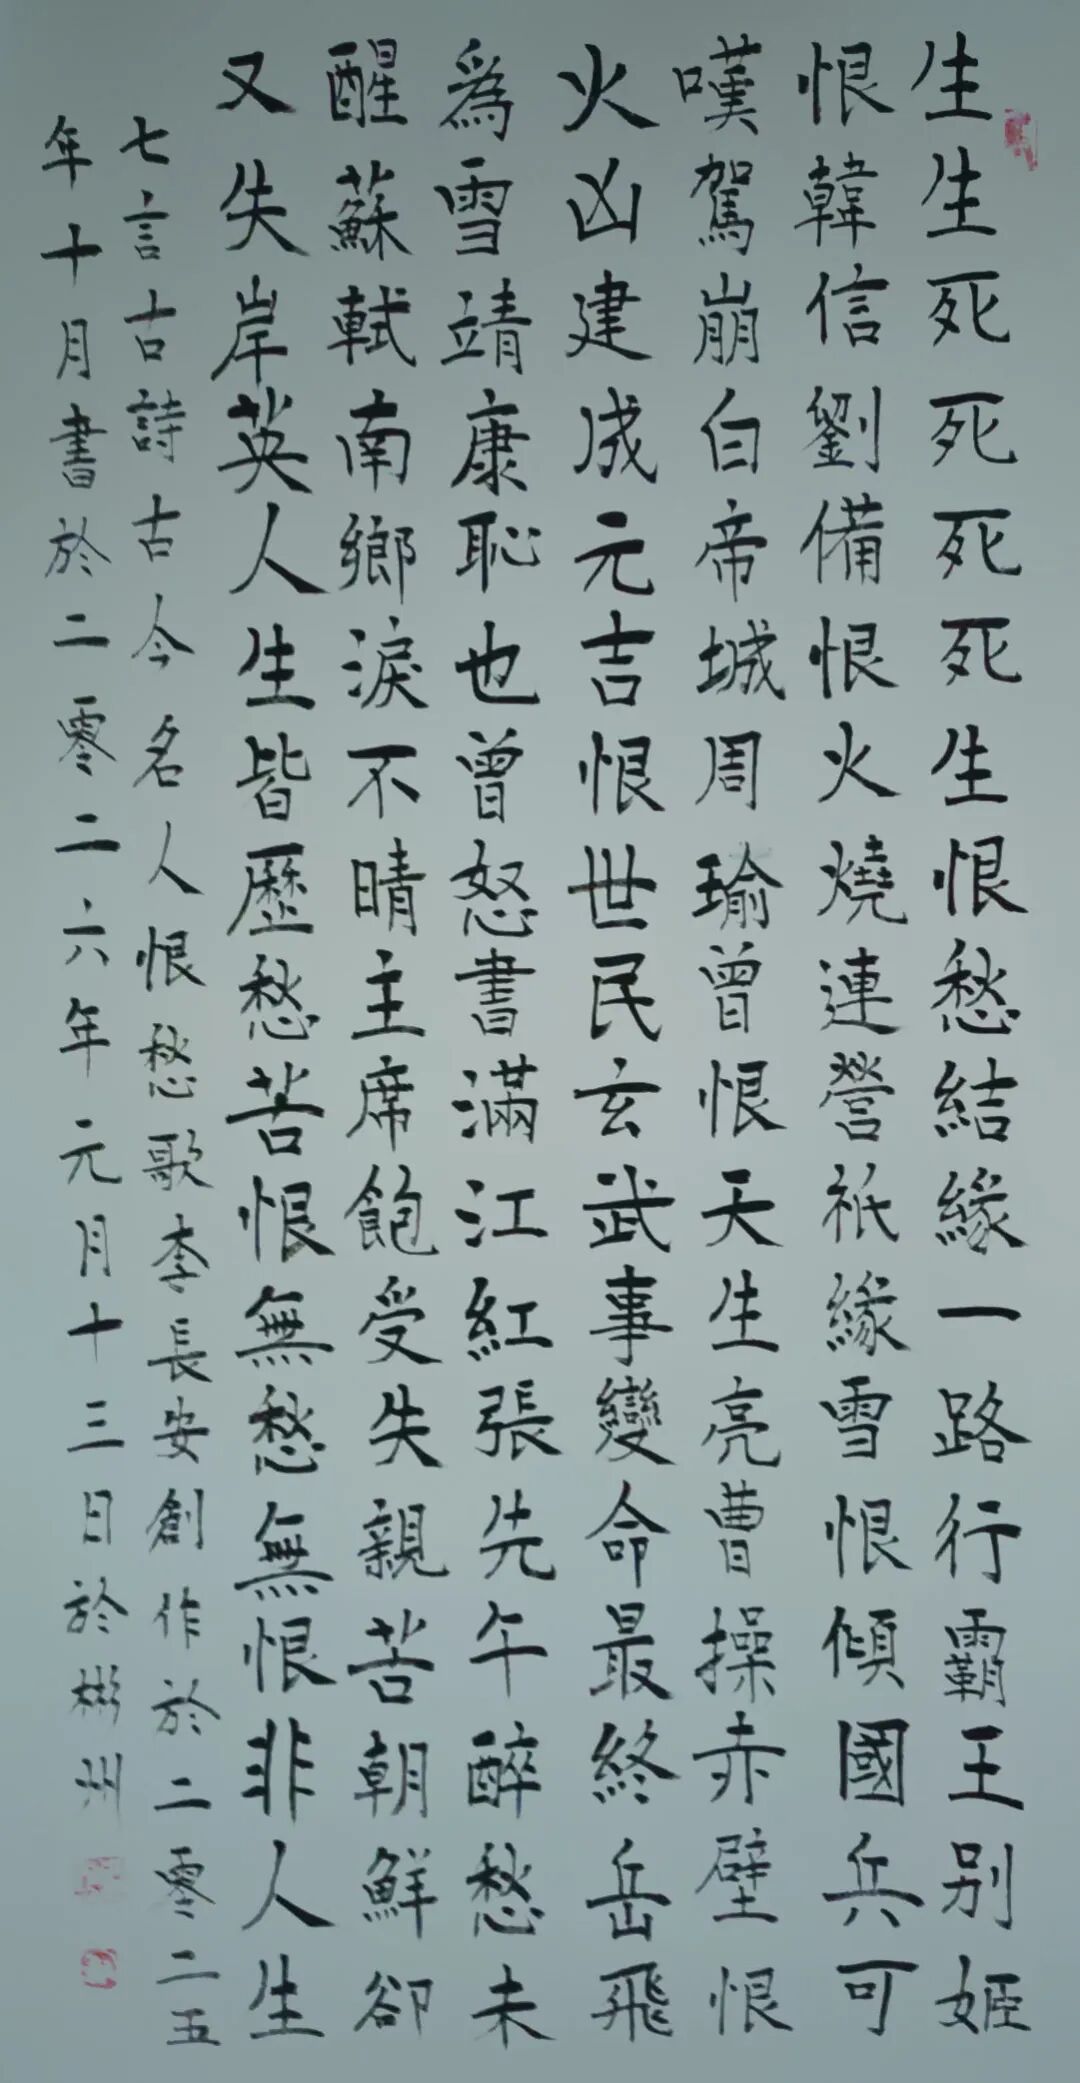 生生死死死死生恨愁結緣一路行霸王别姬
恨韓信劉備恨火燒連營祇緣雪恨傾國兵可
嘆駕崩白帝城周瑜曾恨天生亮曹操赤壁恨
火凶建成元吉恨世民玄武事變命最終岳飛
爲雪靖康恥也曾怒書滿江紅張先午醉愁未
醒蘇軾南鄉淚不晴主席飽受失親苦朝鮮卻
又失岸英人生皆歷愁苦恨無愁無恨非人生
七言古詩古今名人恨愁歌李長安創作於二零二五
年十月書於二零二六年元月十三日於彬州